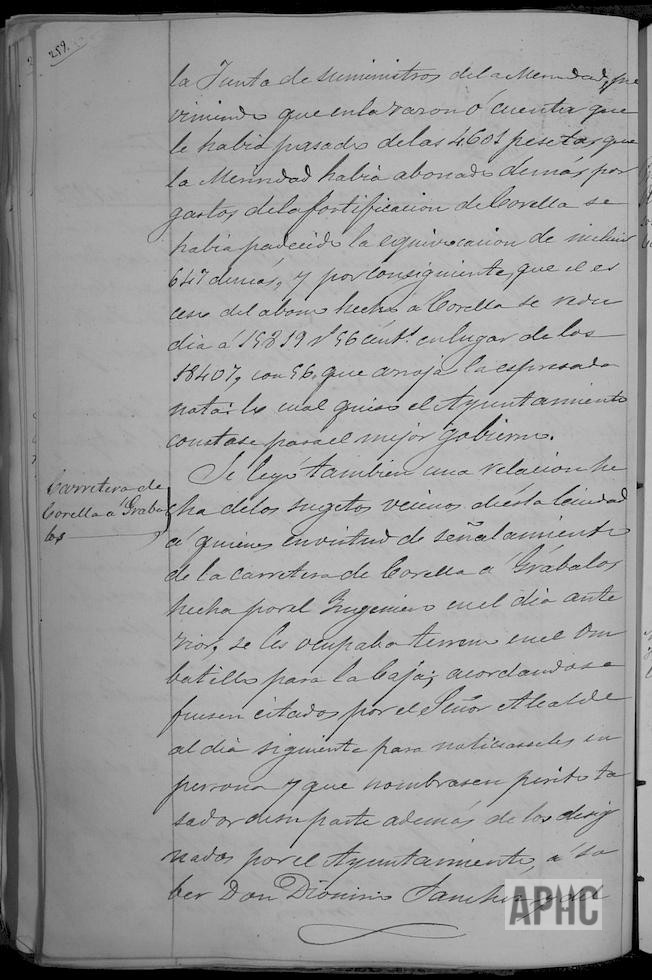 259.
la Junta de suministros de la Merindad, pre
viniendo que en la razon ó cuenta que
le habia pasado de las 4601 pesetas que
la Merindad habia abonado demás por
gastos de la fortificacion de Corella se
habia padecido la equivocacion de incluir
647 demás, y por consiguiente, que el es
ceso del abono hecho á Corella se redu
cia á 15819 56 cent.s en lugar de los
18407, con 56, que arroja la espresada
nota; lo cual quiso el Ayuntamiento
constase para el mejor gobierno.
Carretera de
Corella a Graba
los
Se leyó tambien una relacion he
cha de los sugetos vecinos de esta Ciudad
á quienes en virtud de señalamiento
de la carretera de Corella a Grábalos
hecha por el Yngeniero en el dia ante
rior, se les ocupaba terreno en el Om
batillo para la Caja; acordandose
fuesen citados por el Señor Alcalde
al dia siguiente para noticiarseles en
persona y que nombrasen perito ta
sador de su parte además de los desig
nados por el Ayuntamiento, á sa
ber Don Dionisio Sanchez y del
APHC